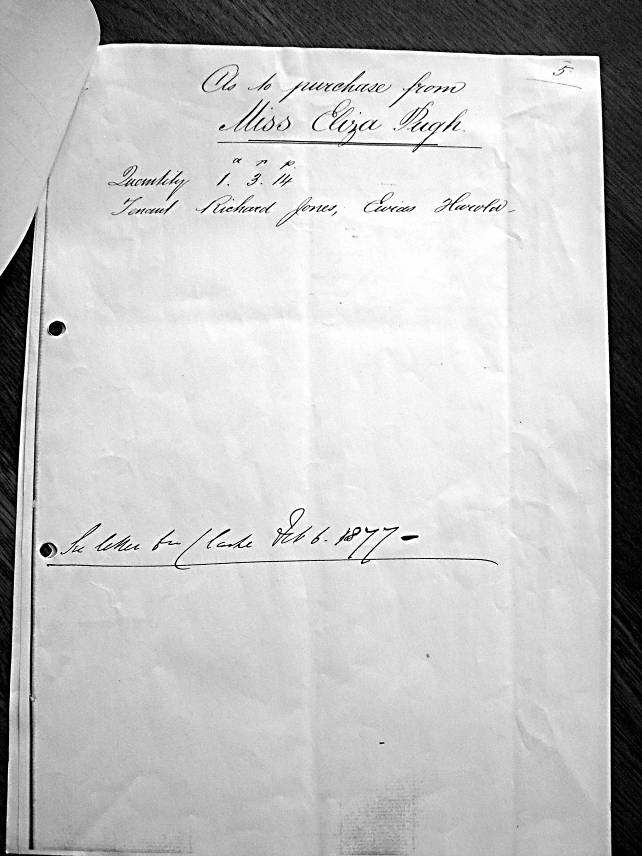 5
As to purchase from
Miss Eliza Pugh.
a r p
Quantity 1. 3. 14
Tenant Richard Jones, Ewias Harold -
See letter Clarke Feb 6. 1877 -